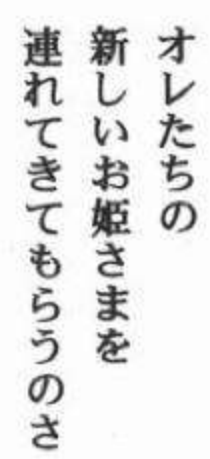 オレたちの
新しいお姫さまを
連れてきてもらうのさ